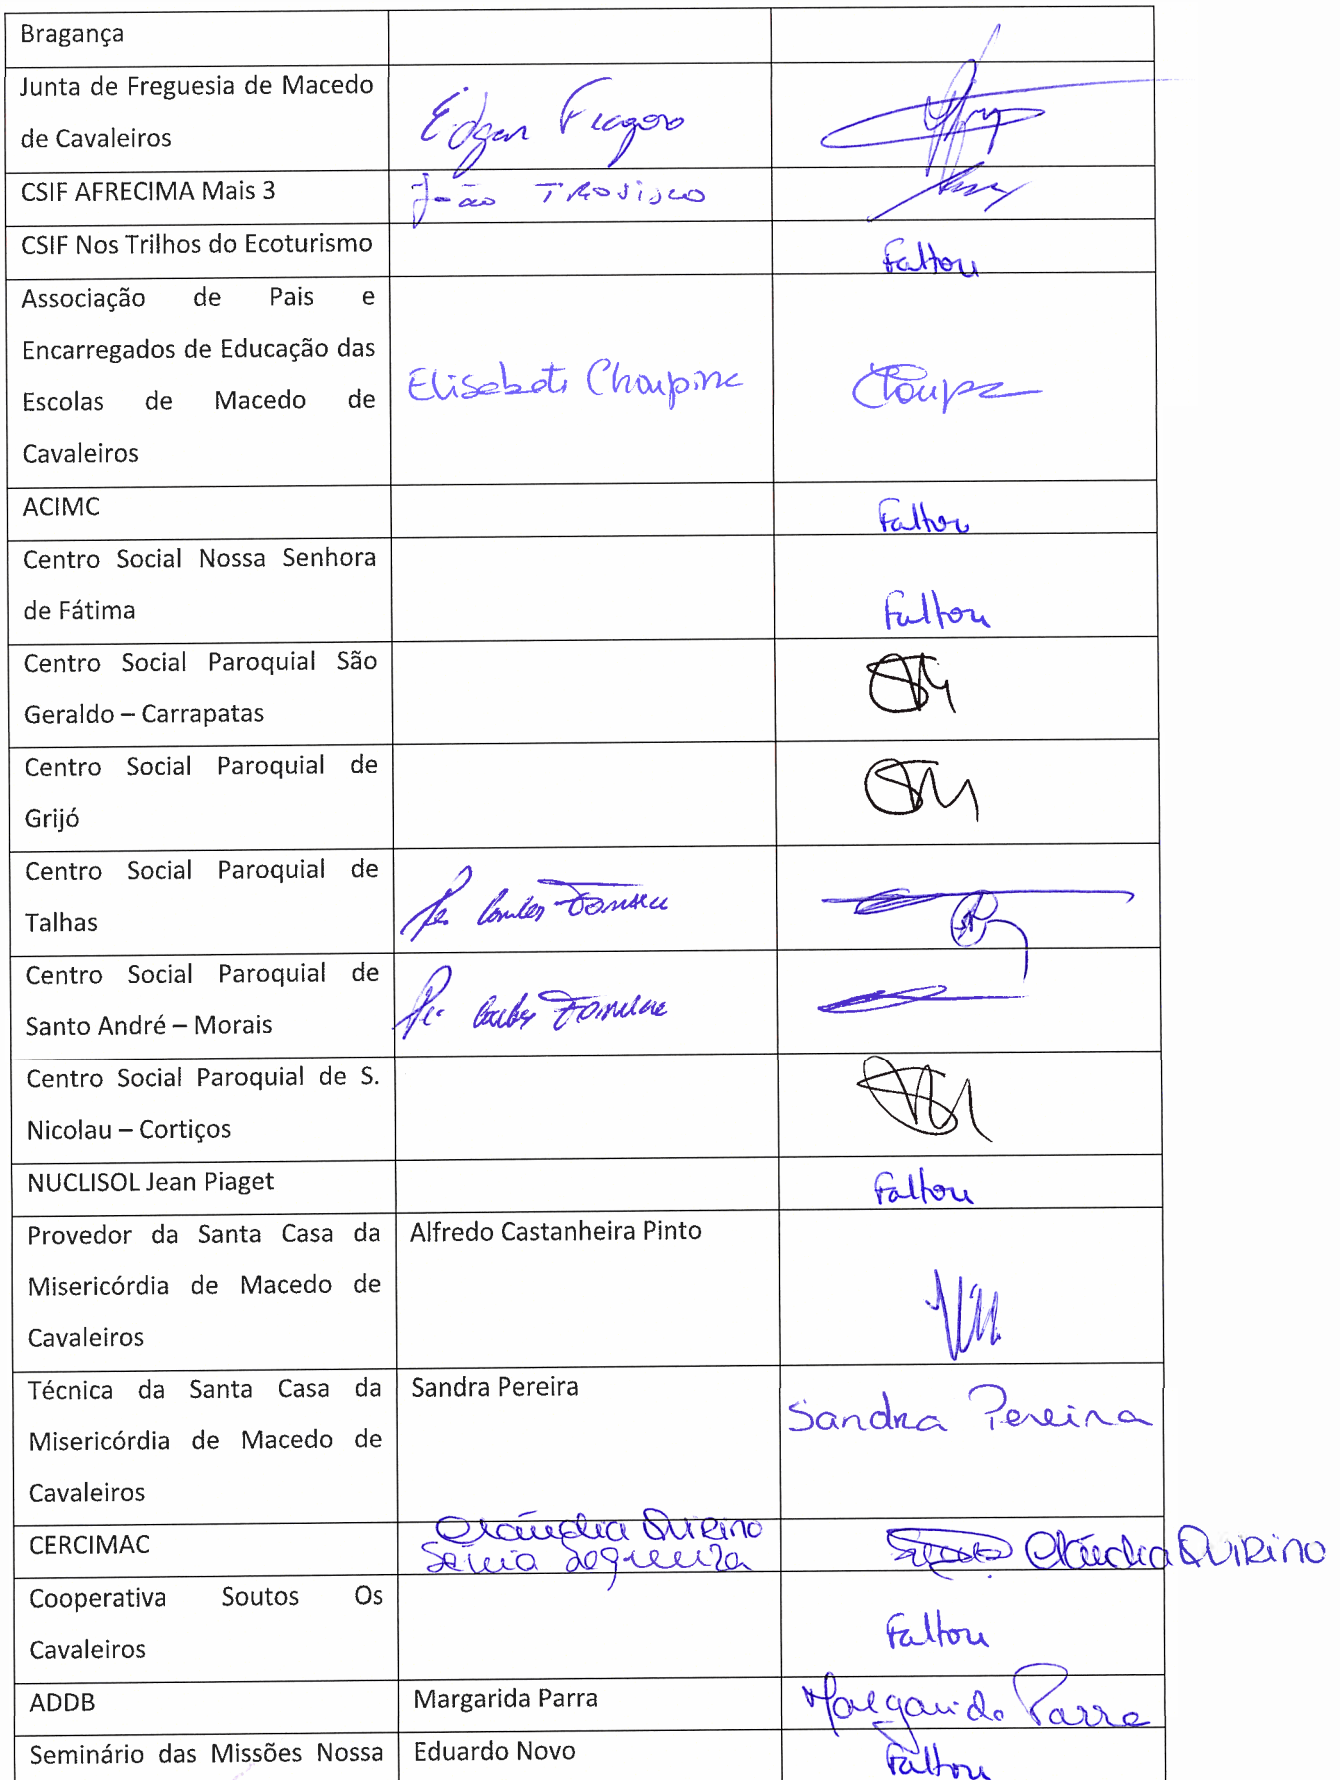 Bragança
Junta de Freguesia de Macedo
de Cavaleiros
Edgar Fragoso
CSIF AFRECIMA Mais 3
João TROVISCO
CSIF Nos Trilhos do Ecoturismo
Faltou
Associação de Pais e
Encarregados de Educação das
Escolas de Macedo de
Cavaleiros
Elisabete Choupina
Choupa
ACIMC
Faltou
Centro Social Nossa Senhora
de Fátima
Faltou
Centro Social Paroquial São
Geraldo – Carrapatas
Centro Social Paroquial de
Grijó
Centro Social Paroquial de
Talhas
Pe. Carlos Fonseca
Centro Social Paroquial de
Santo André – Morais
Pe. Carlos Fonseca
Centro Social Paroquial de S.
Nicolau – Cortiços
NUCLISOL Jean Piaget
Faltou
Provedor da Santa Casa da
Misericórdia de Macedo de
Cavaleiros
Alfredo Castanheira Pinto
Técnica da Santa Casa da
Misericórdia de Macedo de
Cavaleiros
Sandra Pereira
Sandra Pereira
CERCIMAC
Cláudia Quirino
Sónia Nogueira
Cláudia Quirino
Cooperativa Soutos Os
Cavaleiros
Faltou
ADDB
Margarida Parra
Margarida Parra
Seminário das Missões Nossa
Eduardo Novo
Faltou